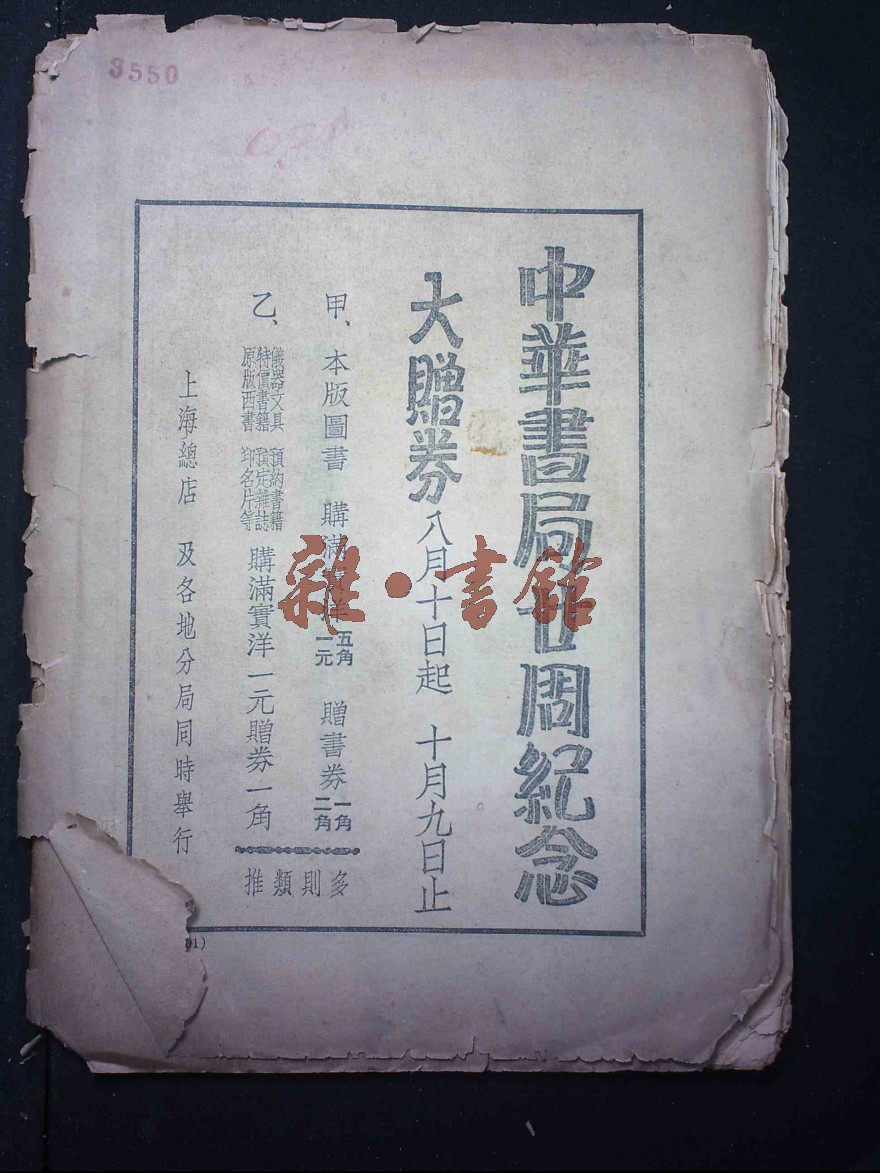 3550
0.20
中華書局廿周紀念
大贈券 八月十日起 十月九日止
甲、本版圖書 購滿實洋 五角 一元 贈書券 一角 二角
乙、儀器文具 特價書籍 原版西書 預約書籍 預定雜誌 印名片等 購滿實洋一元贈券一角
多則類推
上海總店 及各地分局同時舉行
91)
雜·書館